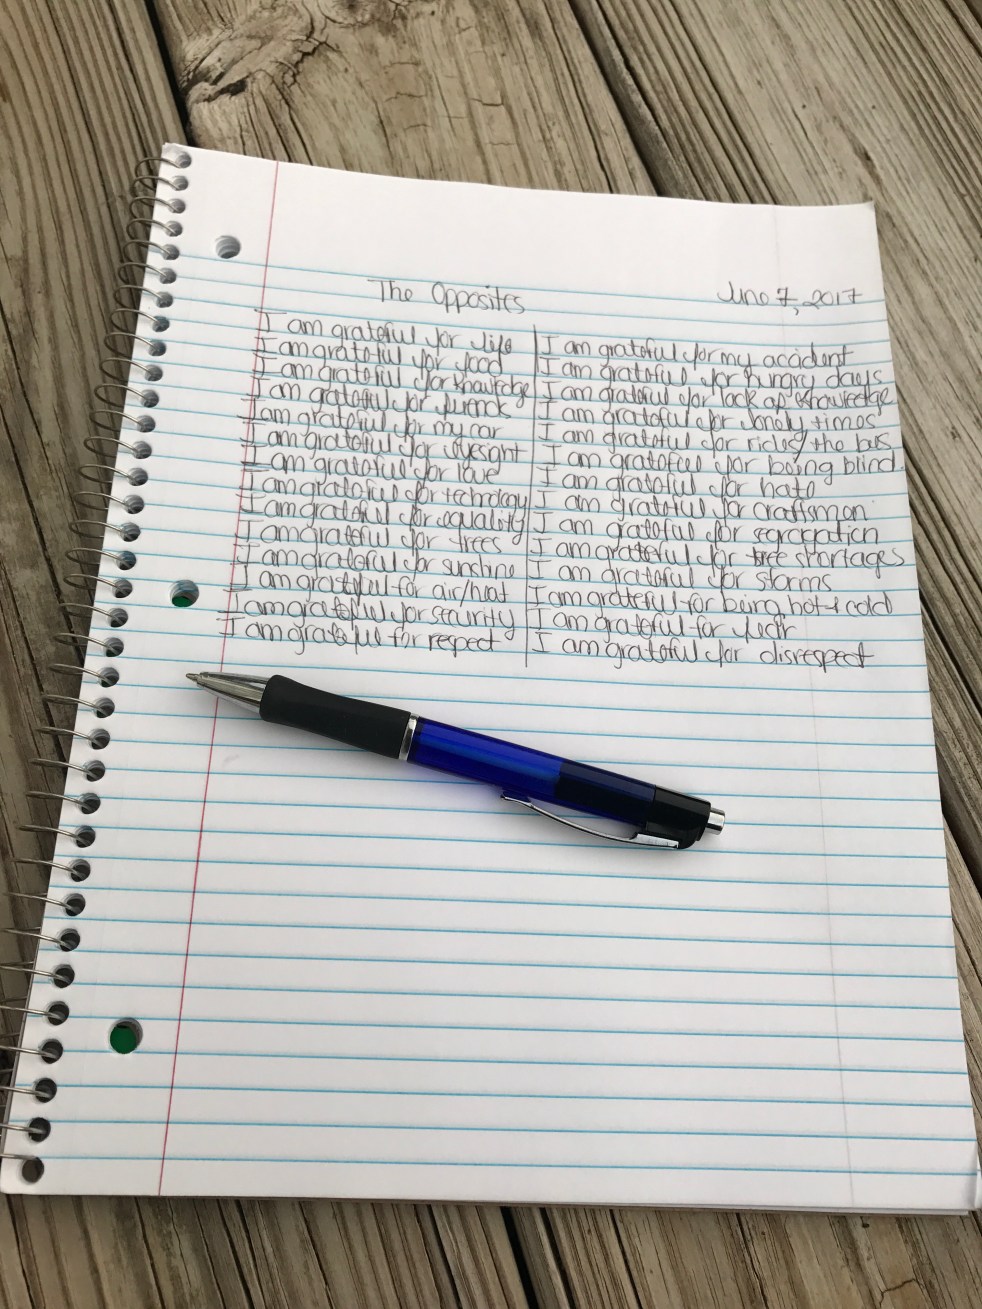 The Opposites June 7, 2017
I am grateful for life
I am grateful for food
I am grateful for knowledge
I am grateful for friends
I am grateful for my car
I am grateful for eyesight
I am grateful for love
I am grateful for technology
I am grateful for equality
I am grateful for trees
I am grateful for sunshine
I am grateful for air/heat
I am grateful for security
I am grateful for respect
I am grateful for my accident
I am grateful for hungry days
I am grateful for lack of knowledge
I am grateful for lonely times
I am grateful for rides/the bus
I am grateful for being blind.
I am grateful for hate
I am grateful for craftsmen
I am grateful for segregation
I am grateful for tree shortages
I am grateful for storms
I am grateful for being hot & cold
I am grateful for fear
I am grateful for disrespect